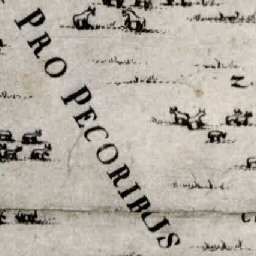 PRO PECORIBUS
2.